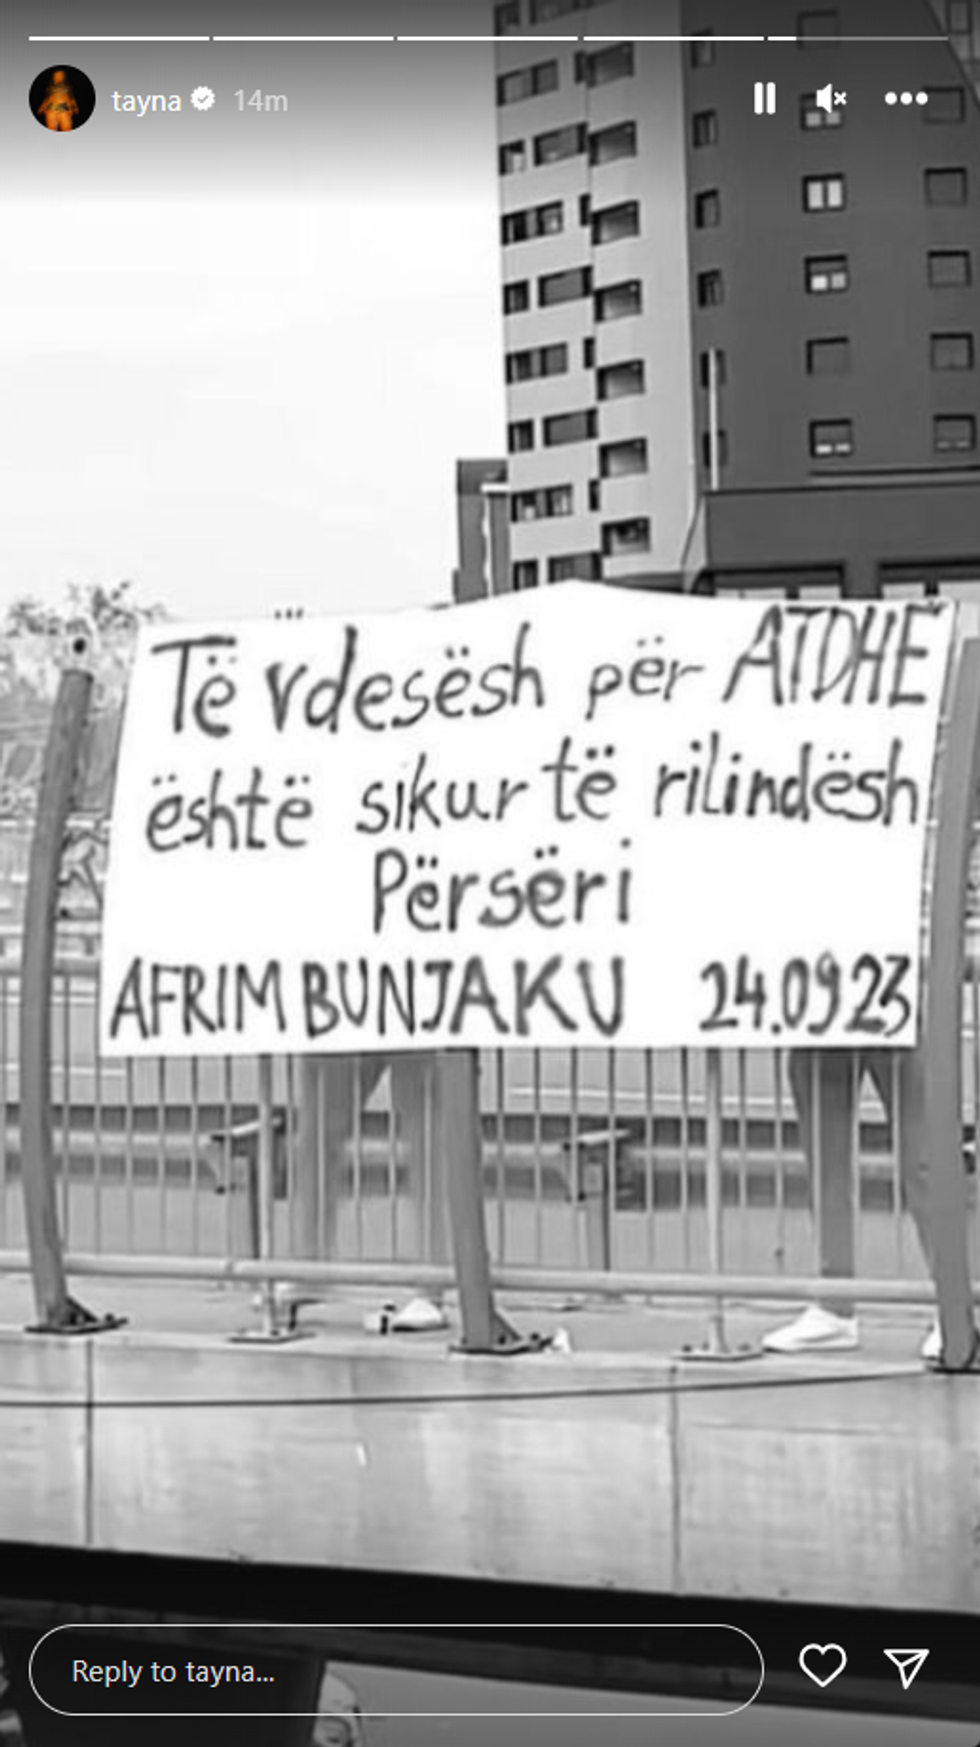 tayna 14m
Të vdesësh për ATDHE
është sikur të rilindësh
Përsëri
AFRIM BUNJAKU 24.09.23
Reply to tayna...